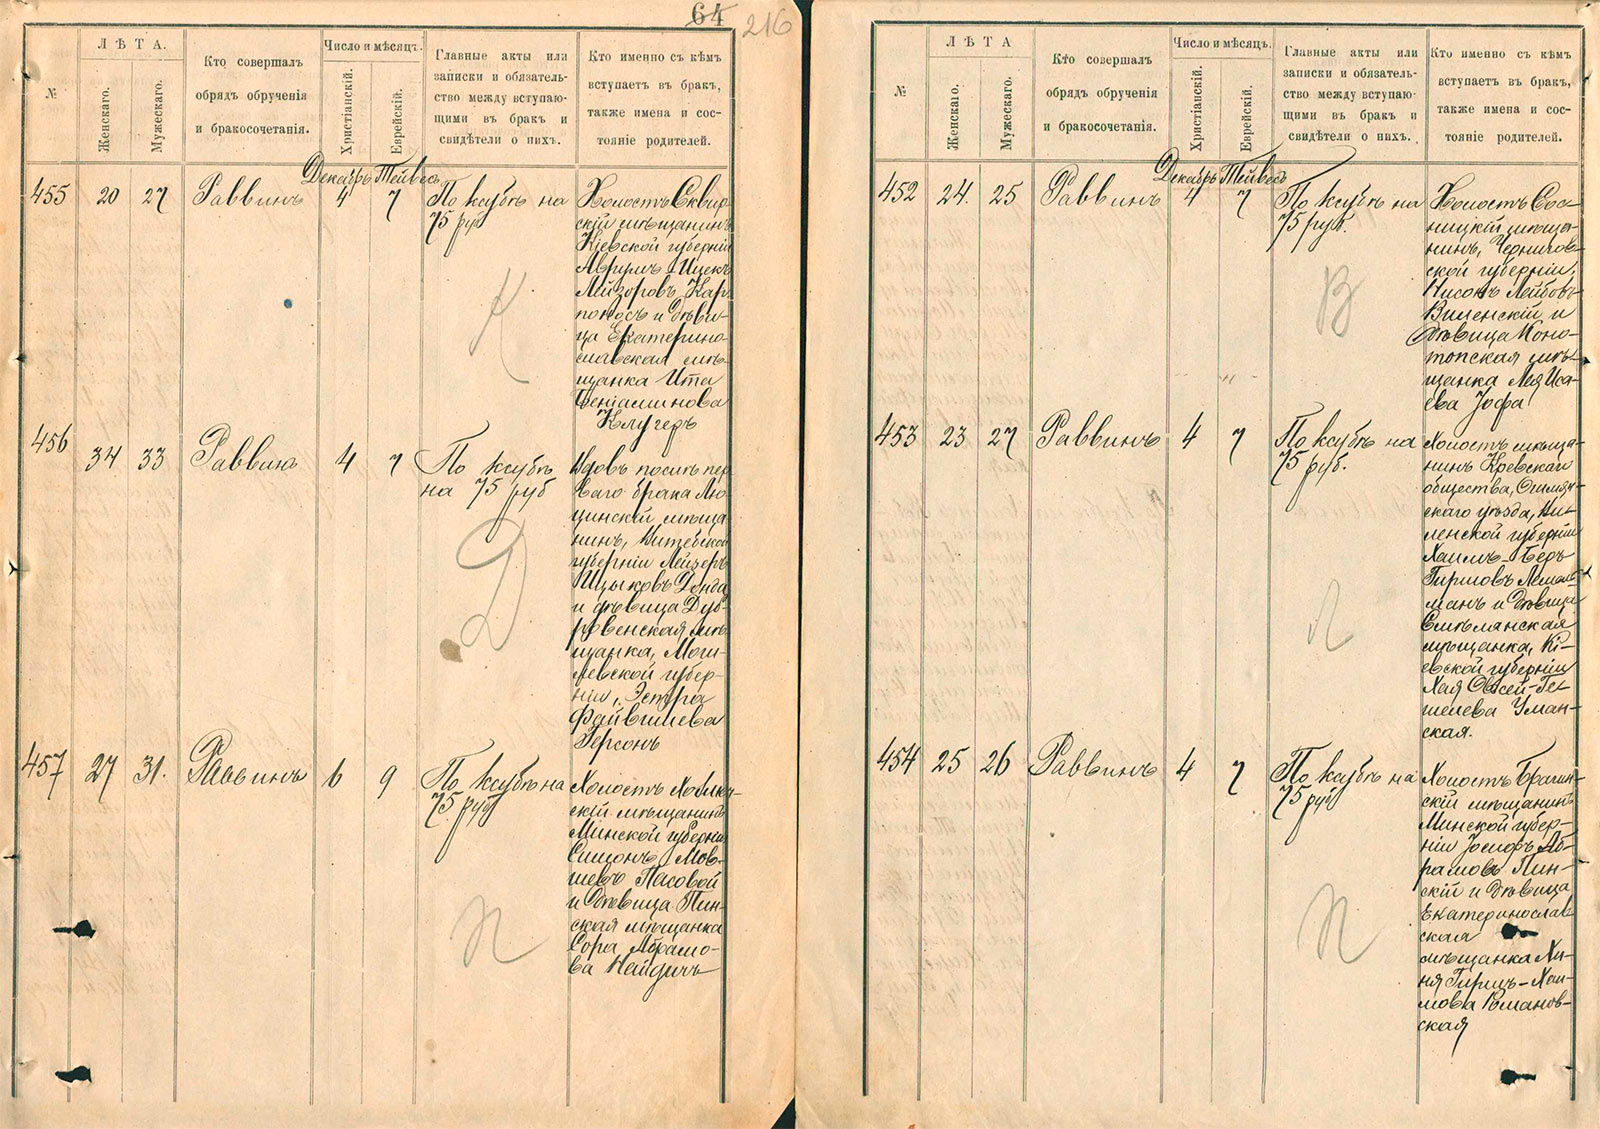 64
216
№
ЛѢТА.
Женскаго.
Мужескаго.
Кто совершалъ
обрядъ обрученія
и бракосочетанія.
Число и мѣсяцъ.
Христіанскій.
Еврейскій.
Главные акты или
записки и обязатель-
ство между вступаю-
щими въ бракъ и
свидѣтели о нихъ.
Кто именно съ кѣмъ
вступаетъ въ бракъ,
также имена и сос-
тояніе родителей.
Декабрь Тейвесъ
455 20 27 Раввинъ 4 7
По ксубѣ на
75 руб
К
Холостъ Сквир-
скій мѣщанинъ
Кіевской губерніи
Аврумъ-Ицекъ
Лейзоровъ Кар-
поносъ и дѣви-
ца Екатерино-
славская мѣ-
щанка Ита
Беніаминова
Клугеръ
456 34 33 Раввинъ 4 7
По ксубѣ
на 75 руб
Д
Вдовъ послѣ пер
ваго брака Лю-
цинскій мѣща
нинъ, Витебской
губерніи Лейзеръ
Ицыковъ Донда
и дѣвица Дуб-
ровенская мѣ-
щанка, Моги-
левской губер-
ніи, Эстра
Файвишева
Герсонъ
457 27 31. Раввинъ 6 9
По ксубѣ на
75 руб
П
Холостъ
скій мѣщанинъ
Минской губерніи
Симонъ Мов-
шевъ Пасовой
и дѣвица Пин-
ская мѣщанка
Сора Абрамо-
ва Найдичъ
№
ЛѢТА
Женскаго.
Мужескаго.
Кто совершалъ
обрядъ обрученія
и бракосочетанія.
Число и мѣсяцъ.
Христіанскій.
Еврейскій.
Главные акты или
записки и обязатель-
ство между вступаю-
щими въ бракъ и
свидѣтели о нихъ.
Кто именно съ кѣмъ
вступаетъ въ бракъ,
также имена и сос-
тояніе родителей.
Декабрь Тейвесъ
452 24. 25 Раввинъ 4 7
По ксубѣ на
75 руб.
В
Холостъ Сос-
ницкій мѣща-
нинъ, Чернигов-
ской губерніи,
Нисонъ Лейбовъ
Виленскій и
дѣвица Коно-
топская мѣ-
щанка Лея Иса-
ева Іофа
453 23 27 Раввинъ 4 7
По ксубѣ на
75 руб.
Л
Холостъ мѣща-
нинъ Кревскаго
общества, Ошмян-
скаго уѣзда, Ви-
ленской губерніи
Хаимъ-Беръ
Гиршовъ
манъ и дѣвица
Смѣлянская
мѣщанка, Кі-
евской губерніи
Хая Овсей-Ге-
шелева Уман-
ская.
454 25 26 Раввинъ 4 7
По ксубѣ на
75 руб
П
Холостъ Брагин-
скій мѣщанинъ
Минской губер-
ніи Іосифъ Аб-
рамовъ Пин-
скій и дѣвица
Екатеринослав
ская
мѣщанка Хи-
ня Гиршъ-Хаи-
мова Романов-
ская